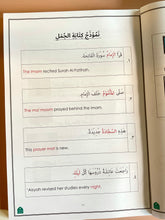 نَمُوذَجُ كِتَابَةِ الْجُمَلِ
١. قَرَأَ الْإِمَامُ سُورَةَ الْفَاتِحَةِ.
The imam recited Surah Al-Fatihah.
٢. صَلَّى الْمَأْمُومُ خَلْفَ الْإِمَامِ.
The ma'moom prayed behind the imam.
٣. هَذِهِ السَّجَّادَةُ جَدِيدَةٌ.
This prayer mat is new.
٤. رَاجَعَتْ عَائِشَةُ دُرُوسَهَا كُلَّ لَيْلَةٍ.
'Aayah revised her studies every night.